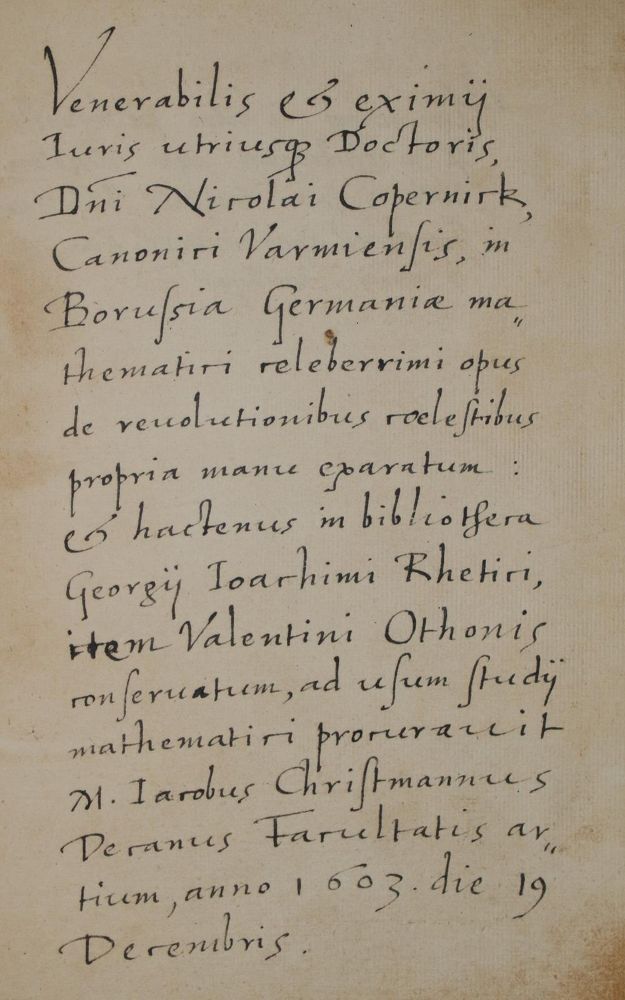 Venerabilis & eximij
Iuris utriusq; Doctoris,
Dn̄i Nicolai Copernick,
Canonici Varmienſis, in
Boruſsia Germaniæ ma〃
thematici celeberrimi opus
de reuolutionibus cœleſtibus
propria manu exaratum :
& hactenus in bibliotheca
Georgij Ioachimi Rhetici,
item Valentini Othonis
conſeruatum, ad uſum ſtudij
mathematici procurauit
M. Iacobus Chriſtmannus
Decanus Facultatis ar〃
tium, anno 1603. die 19
Decembris.